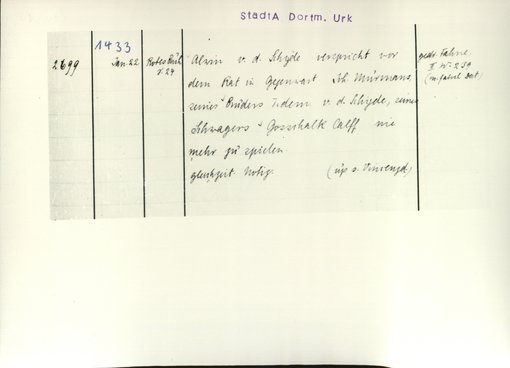 StadtA Dortm. Urk
1433
2699
Jan 22
Rotes Buch
S. 24
Alvin v. d. Schyde verspricht vor
dem Rat in Gegenwart Joh Mürmans,
seines Bruders v. d. Schyde, seines
Schwagers Gosschalk Calff nie
mehr zu spielen
gleichzeit. Notiz.
gedr Fahne
II Nr 234
(m. falsch Dat)